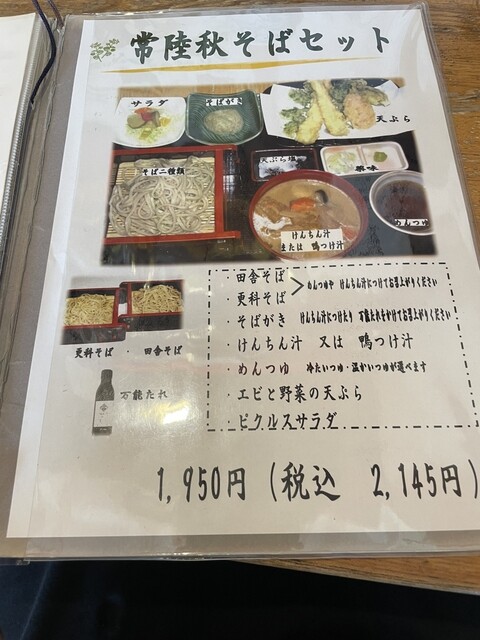 常陸秋そばセット
サラダ
そばがき
天ぷら
そば二種類
天ぷら塩
薬味
けんちん汁
または 鴨つけ汁
めんつゆ
更科そば ・ 田舎そば
万能たれ
・田舎そば
・更科そば
めんつゆや けんちん汁につけてお召上がりください
・そばがき けんちん汁につけたり 万能たれをかけてお召上がりください
・けんちん汁 又は 鴨つけ汁
・めんつゆ 冷たいつゆ・温かいつゆが選べます
・エビと野菜の天ぷら
・ピクルスサラダ
1,950円 (税込 2,145円)